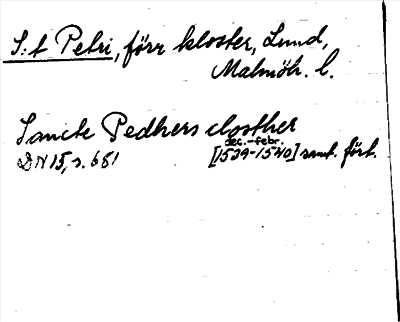 S:t Petri, förr kloster, Lund,
Malmöh. l.
Sancte Pedhers closther
dec.-febr.
DN 15, s. 651 [1539-1540] samt. fört.